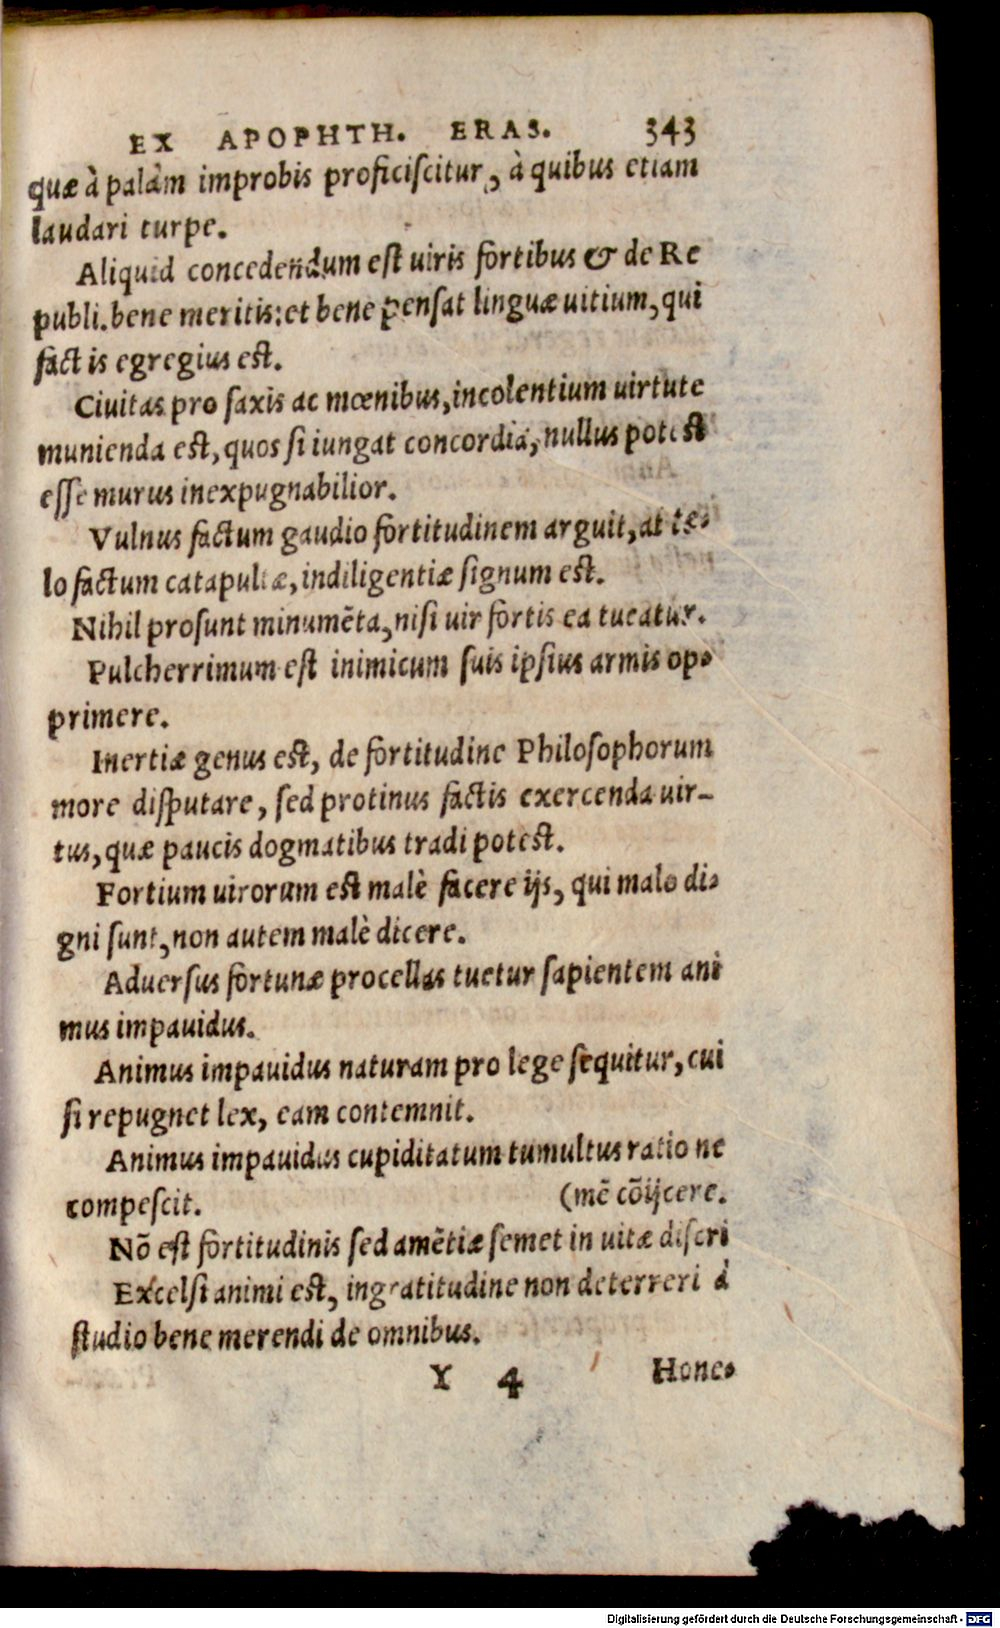 EX APOPHTH. ERAS. 343
quæ à palàm improbis proficiscitur, à quibus etiam
laudari turpe.
Aliquid concedendum est uiris fortibus & de Re
publi. bene meritis: et bene pensat linguæ uitium, qui
factis egregius est.
Ciuitas pro saxis ac mœnibus, incolentium uirtute
munienda est, quos si iungat concordia, nullus potest
esse murus inexpugnabilior.
Vulnus factum gaudio fortitudinem arguit, at te-
lo factum catapultæ, indiligentiæ signum est.
Nihil prosunt minumēta, nisi uir fortis ea tueatur.
Pulcherrimum est inimicum suis ipsius armis op-
primere.
Inertiæ genus est, de fortitudine Philosophorum
more disputare, sed protinus factis exercenda uir-
tus, quæ paucis dogmatibus tradi potest.
Fortium uirorum est malè facere ijs, qui malo di-
gni sunt, non autem malè dicere.
Aduersus fortunæ procellas tuetur sapientem ani
mus impauidus.
Animus impauidus naturam pro lege sequitur, cui
si repugnet lex, eam contemnit.
Animus impauidus cupiditatum tumultus ratione
compescit. (mē cōijcere.
Nō est fortitudinis sed amētiæ semet in uitæ discri
Excelsi animi est, ingratitudine non deterreri à
studio bene merendi de omnibus.
Y 4 Hone-
Digitalisierung gefördert durch die Deutsche Forschungsgemeinschaft - DFG